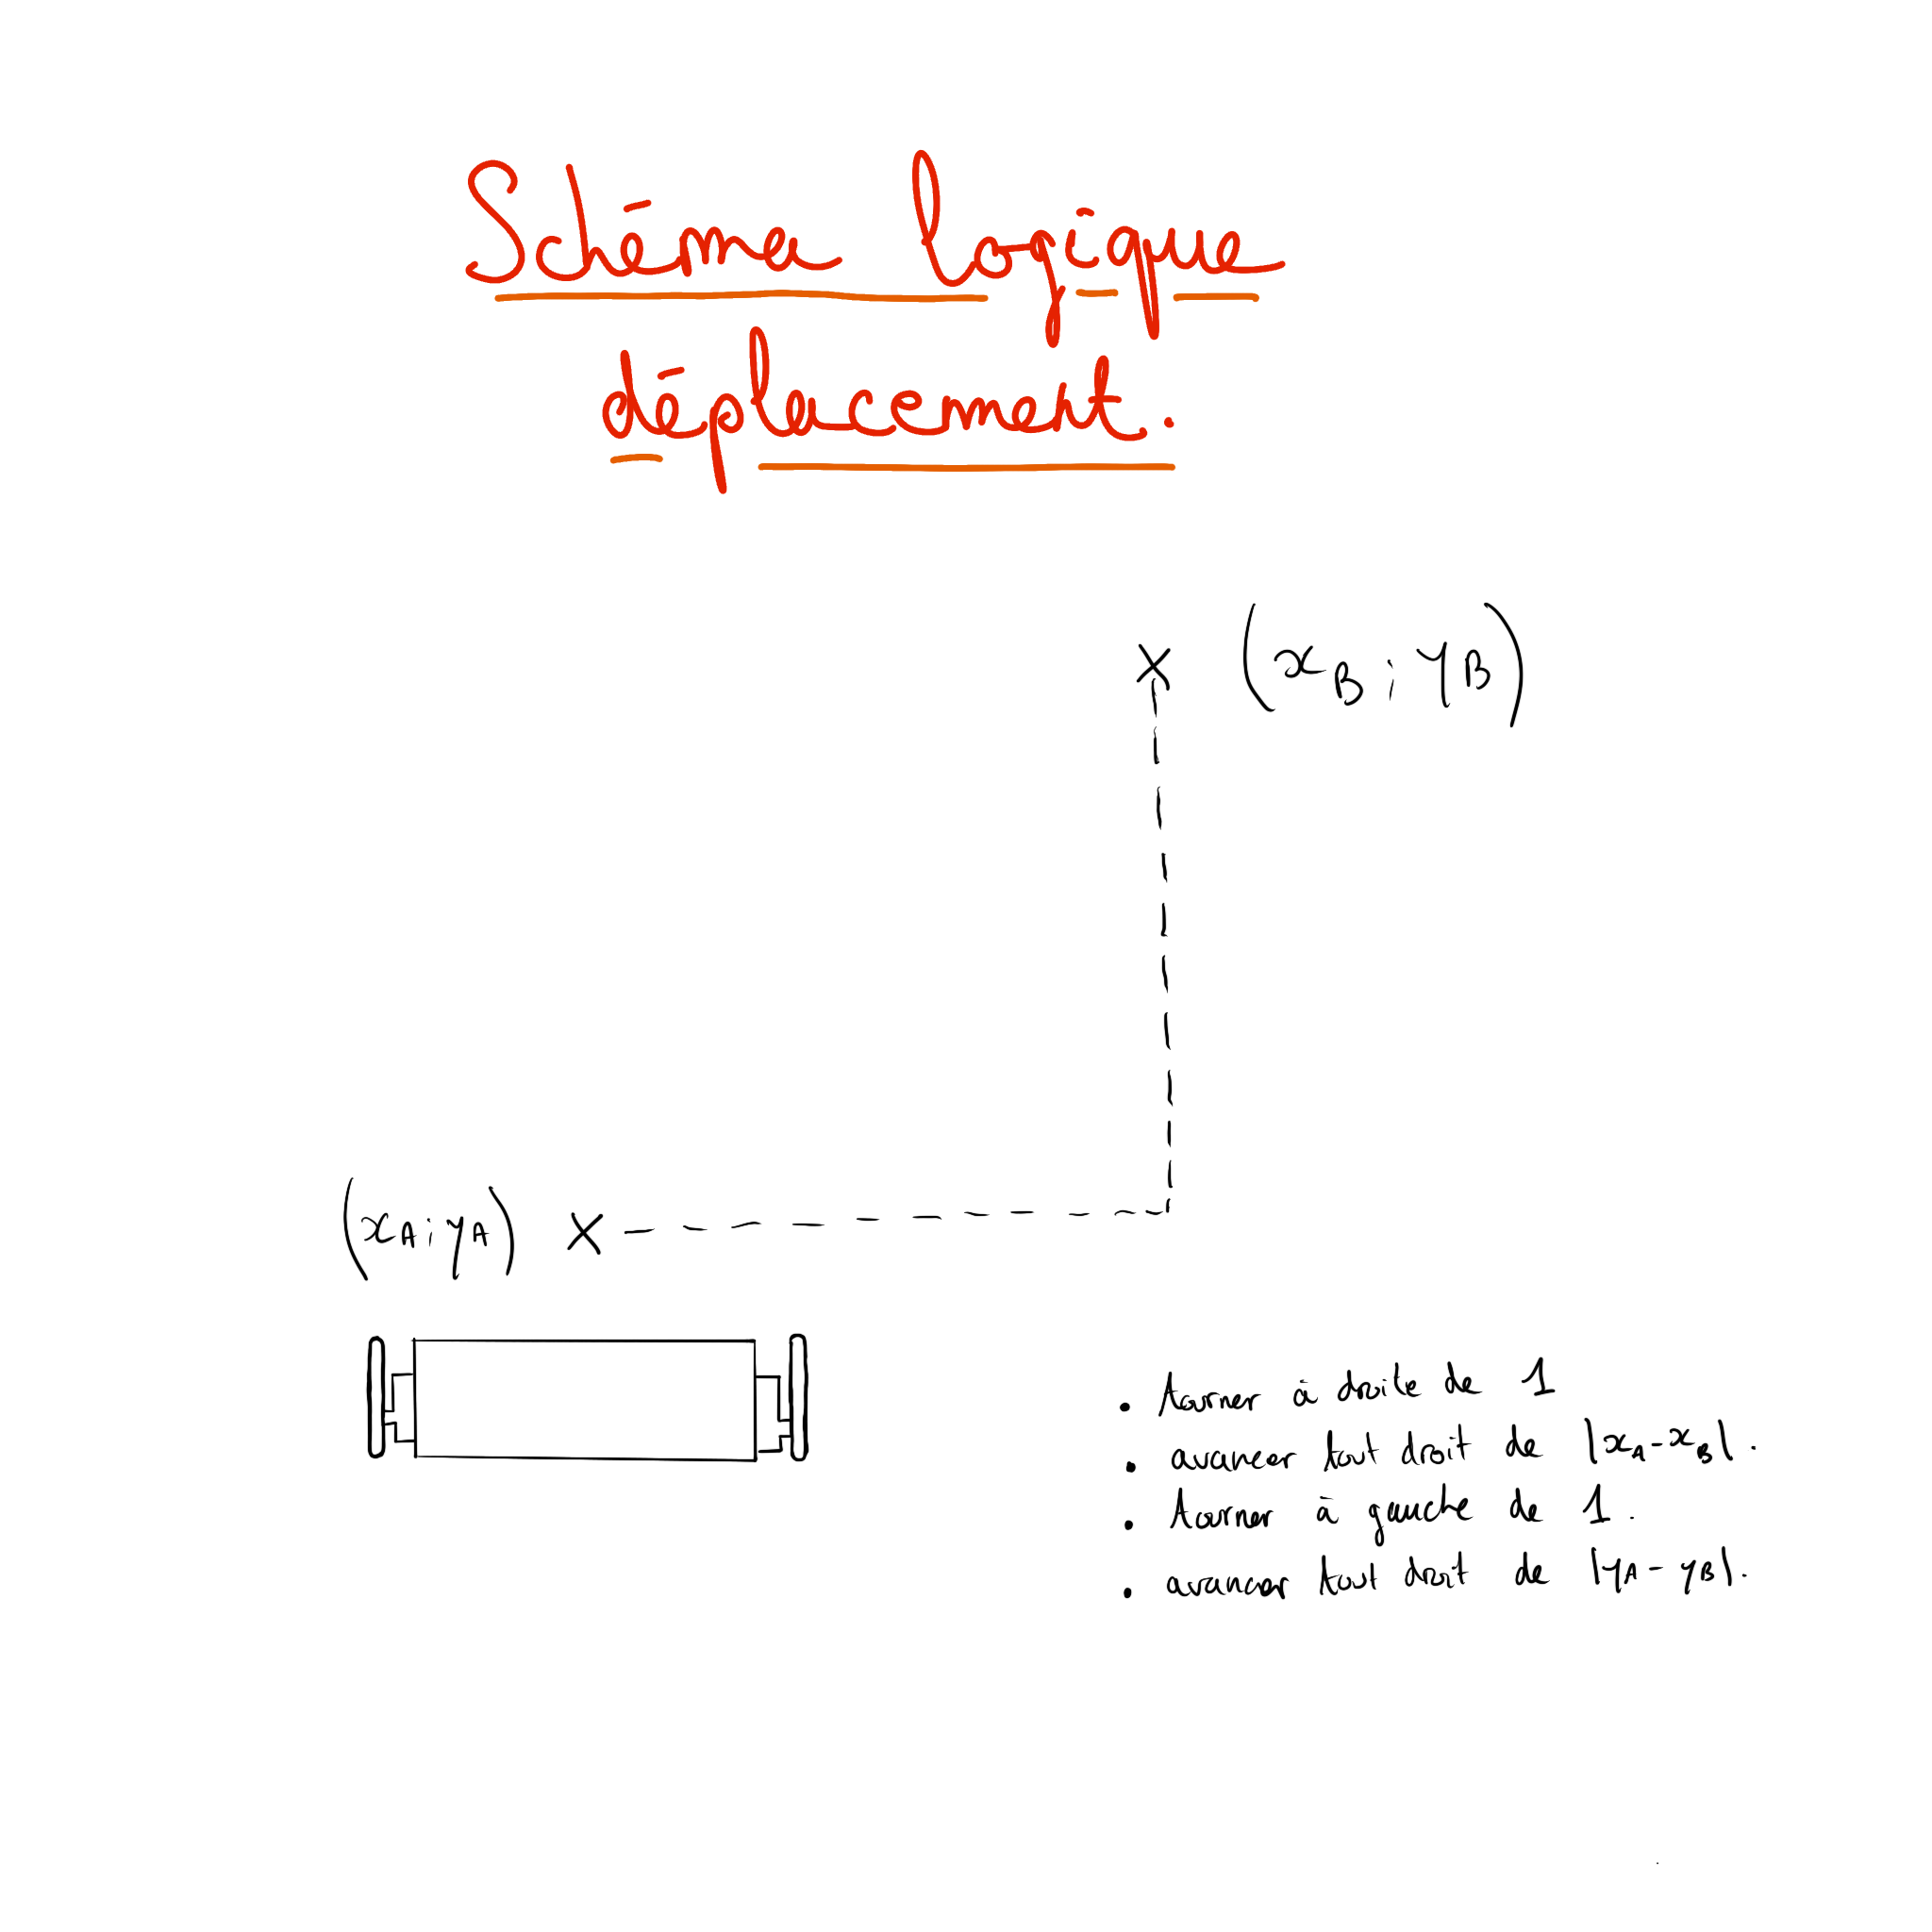 Schéma logique
déplacement.
(xB ; yB)
(xA ; yA)
• tourner à droite de 1
• avancer tout droit de |xA - xB|.
• tourner à gauche de 1.
• avancer tout droit de |yA - yB|.